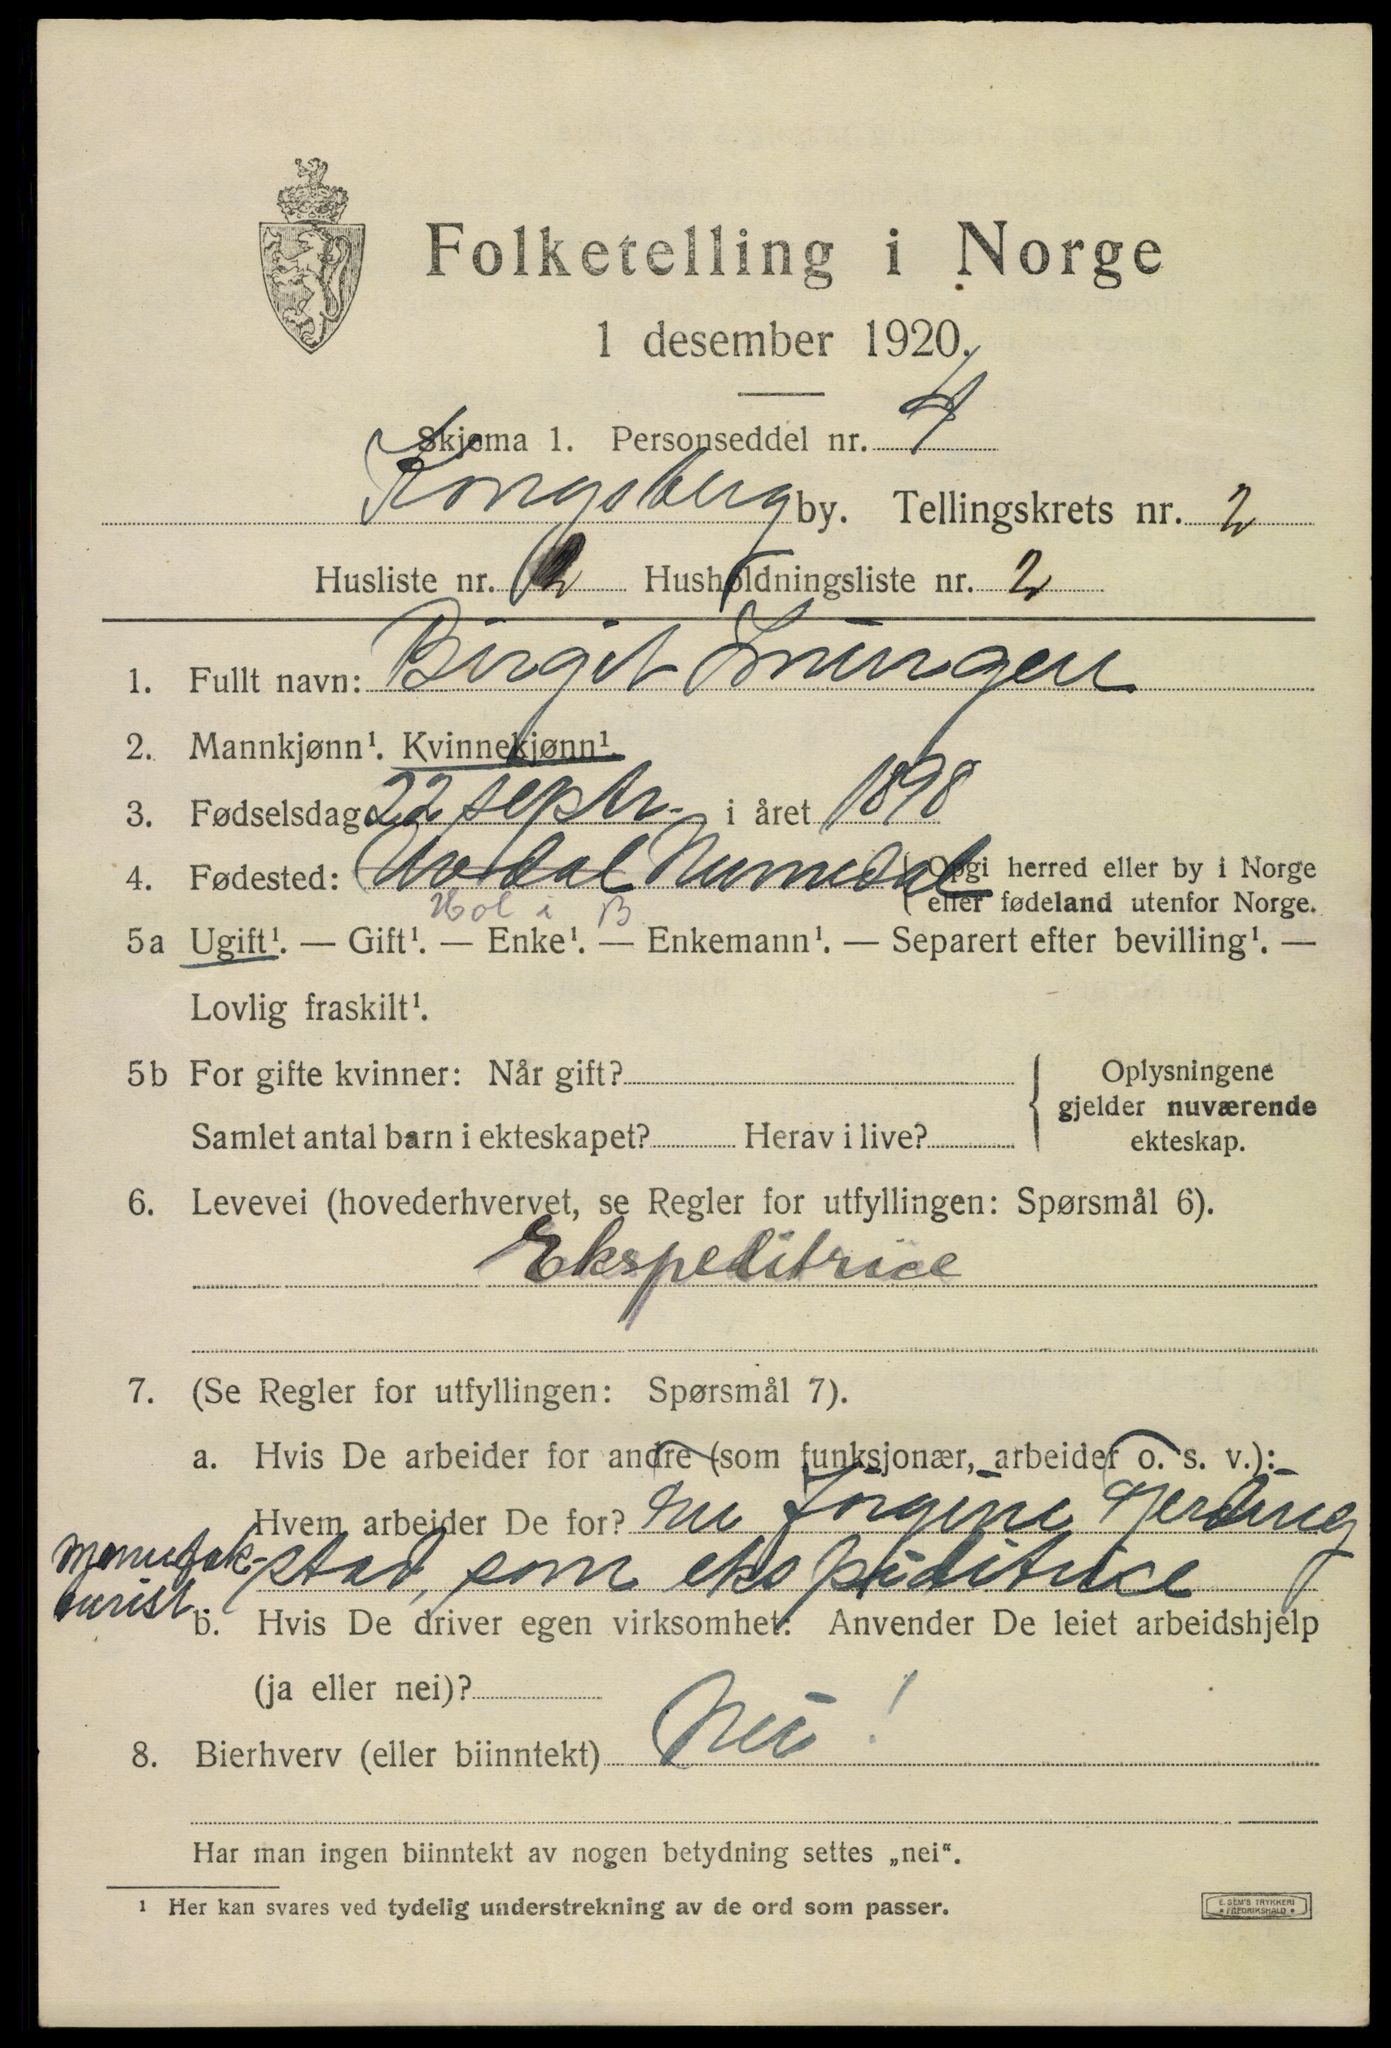 Folketelling i Norge
1 desember 1920.
Skjema 1. Personseddel nr. 4
Kongsberg by. Tellingskrets nr. 2
Husliste nr. 2 Husholdningsliste nr. 2
1. Fullt navn: Birgit
2. Mannkjønn¹. Kvinnekjønn¹.
3. Fødselsdag 22 septr. i året 1898
4. Fødested: Uvdal Numedal (Opgi herred eller by i Norge
eller fødeland utenfor Norge.
Hol i B
5a Ugift¹. — Gift¹. — Enke¹. — Enkemann¹. — Separert efter bevilling¹. —
Lovlig fraskilt¹.
5b For gifte kvinner: Når gift? { Oplysningene
gjelder nuværende
Samlet antal barn i ekteskapet? Herav i live? ekteskap.
6. Levevei (hovederhvervet, se Regler for utfyllingen: Spørsmål 6).
Ekspeditrice
7. (Se Regler for utfyllingen: Spørsmål 7).
a. Hvis De arbeider for andre (som funksjonær, arbeider o. s. v.):
Hvem arbeider De for? Jørgine
Manufak-
stad, som ekspeditrice
turist.
b. Hvis De driver egen virksomhet: Anvender De leiet arbeidshjelp
(ja eller nei)?
8. Bierhverv (eller biinntekt) Nei!
Har man ingen biinntekt av nogen betydning settes „nei“.
¹ Her kan svares ved tydelig understrekning av de ord som passer.
E. SEM'S TRYKKERI
* FREDRIKSHALD *